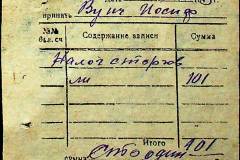 принять Вуич Иосифо
№№ Содержание записи Сумма
бал. сч
Налог с торгов
ли 101
Итого 101
сумма Сто один